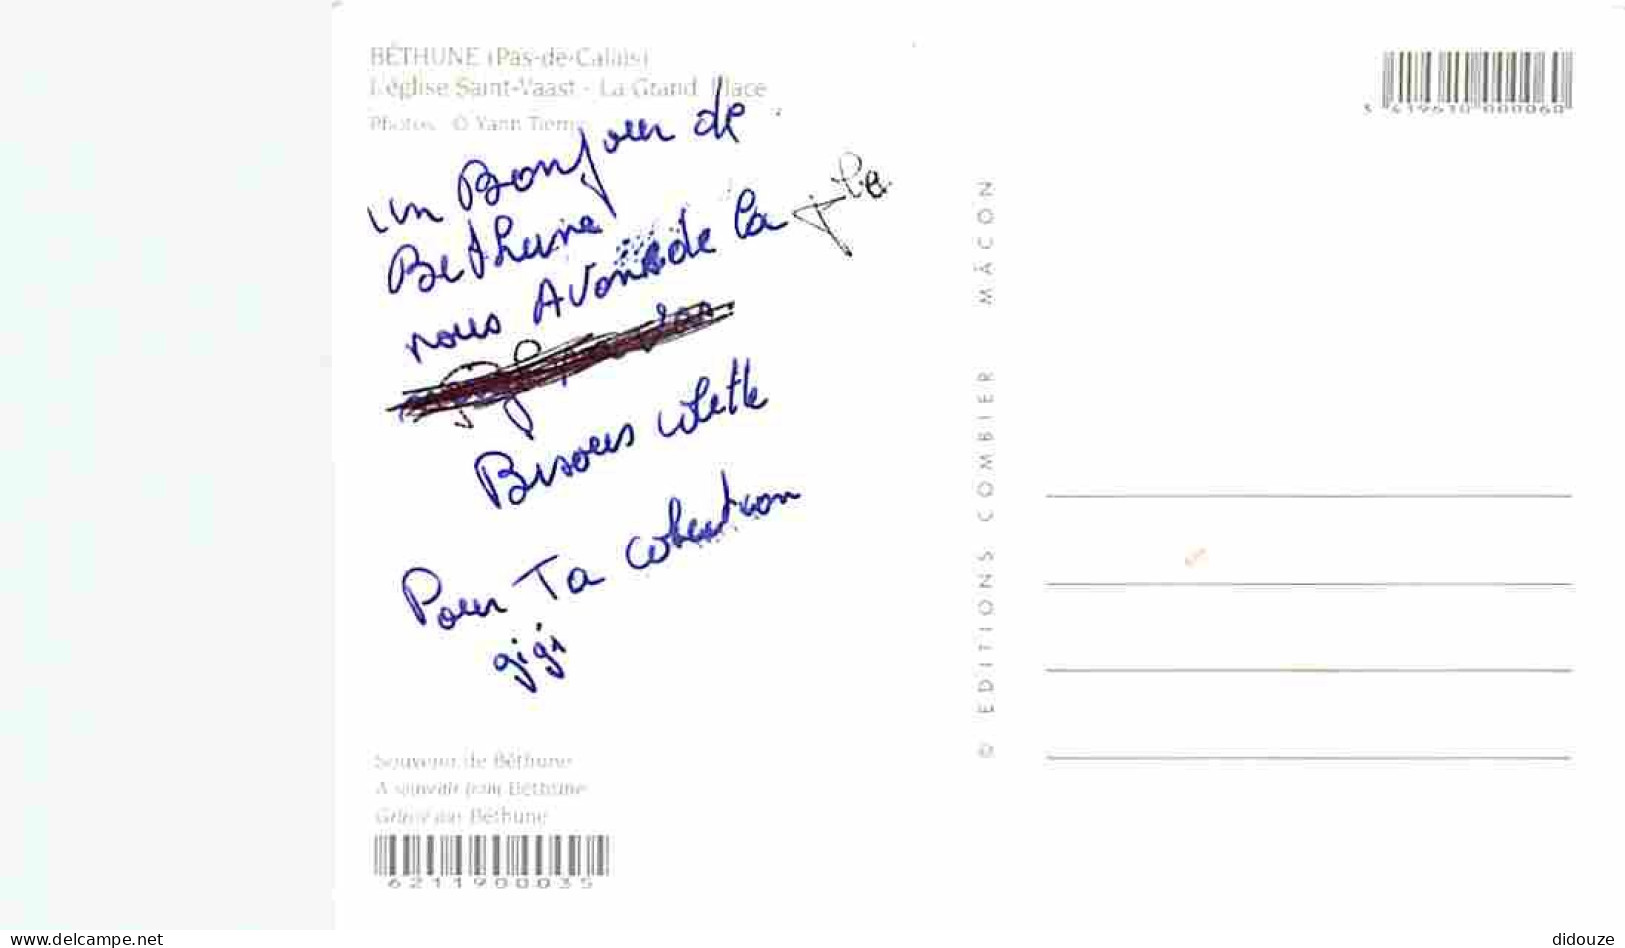 BÉTHUNE (Pas-de-Calais)
L'église Saint-Vaast - La Grand Place
Photos © Yann
un Bonjour de
Bethune
nous Avons de la
Bisous colette
Pour Ta
gigi
Souvenir de Béthune
A souvenir from Béthune
Béthune
6211900035
3 419610 000060
© EDITIONS COMBIER MÂCON
www.delcampe.net
didouze